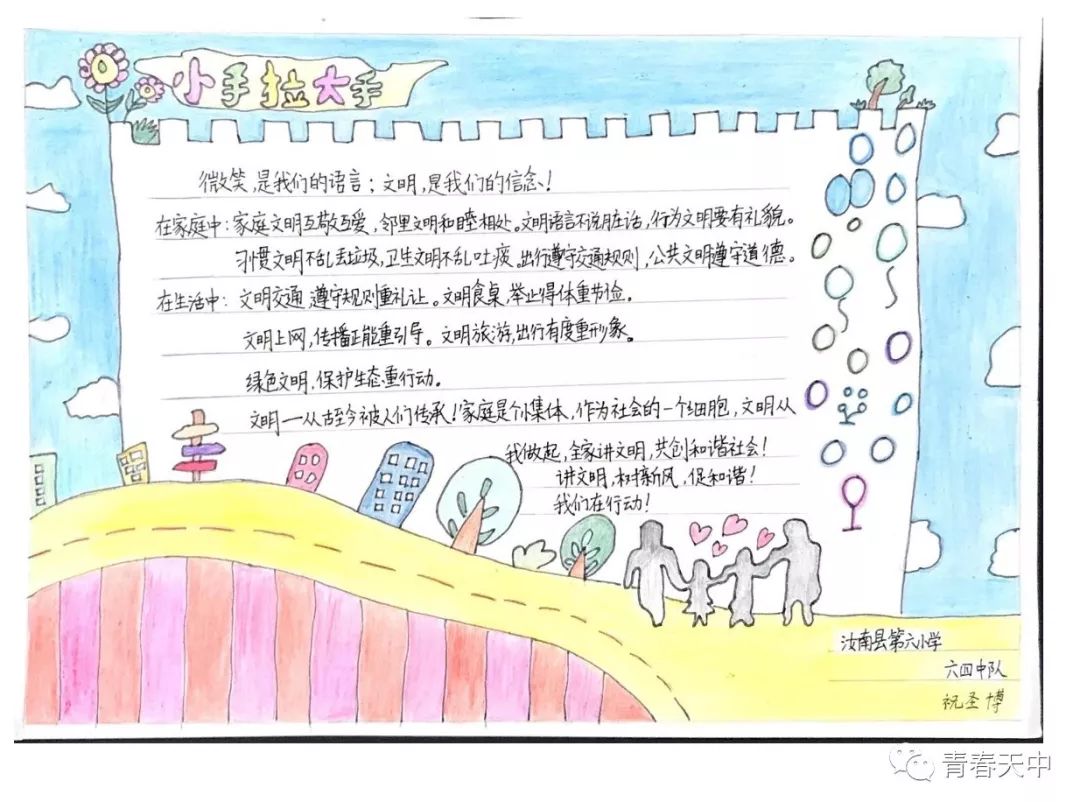 小手拉大手
微笑,是我们的语言;文明,是我们的信念!
在家庭中:家庭文明互敬互爱,邻里文明和睦相处。文明语言不说脏话,行为文明要有礼貌。
习惯文明不乱丢垃圾,卫生文明不乱吐痰。出行遵守交通规则,公共文明遵守道德。
在生活中:文明交通,遵守规则重礼让。文明食桌,举止得体重节俭。
文明上网,传播正能重引导。文明旅游,出行有度重形象。
绿色文明,保护生态重行动。
文明一从古至今被人们传承!家庭是个小集体,作为社会的一个细胞,文明从
我做起,全家讲文明,共创和谐社会!
讲文明,树新风,促和谐!
我们在行动!
汝南县第六小学
六四中队
祝圣博
青春天中